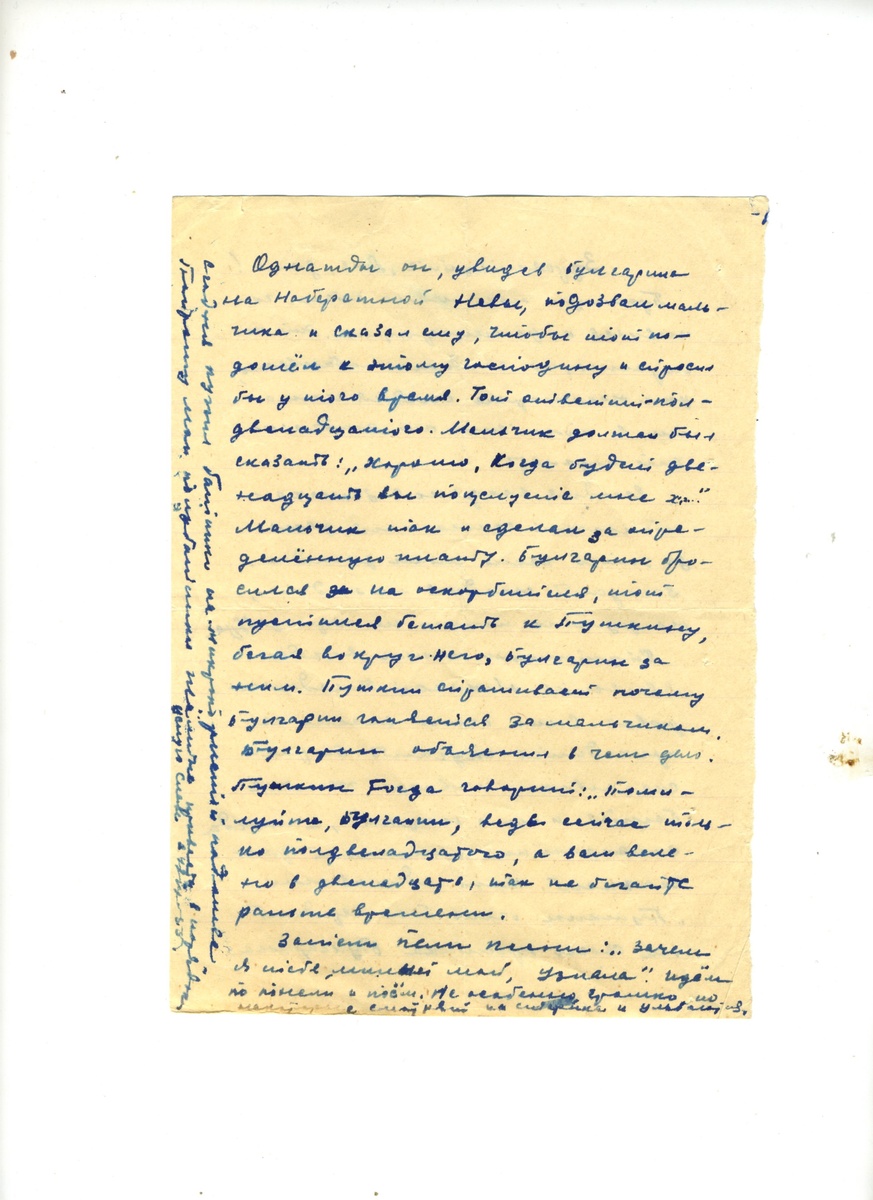 Однажды он, увидев Булгарина
на Набережной Невы, подозвал маль-
чика и сказал ему, чтобы тот по-
дошёл к этому господину и спросил
бы у того время. Тот ответит-пол-
двенадцатого. Мальчик должен был
сказать: „Хорошо, Когда будет две-
надцать вы поцелуете мне х..."
Мальчик так и сделал за опре-
делённую плату. Булгарин бро-
сился за на оскорбителя, тот
пустился бежать к Пушкину,
бегая вокруг него, Булгарин за
ним. Пушкин спрашивает почему
Булгарин гоняется за мальчиком.
Булгарин объяснил в чем дело.
Пушкин Тогда говорит: „Поми-
луйте, Булгарин, ведь сейчас толь-
ко полдвенадцатого, а вам веле-
но в двенадцать, так не бегайте
раньше времени.
Затем пели песни: „Зачем
я тебя, милый мой, узнала" идём
по панели и поём. Не особенно громко, но
смотрят на и улыбаются.